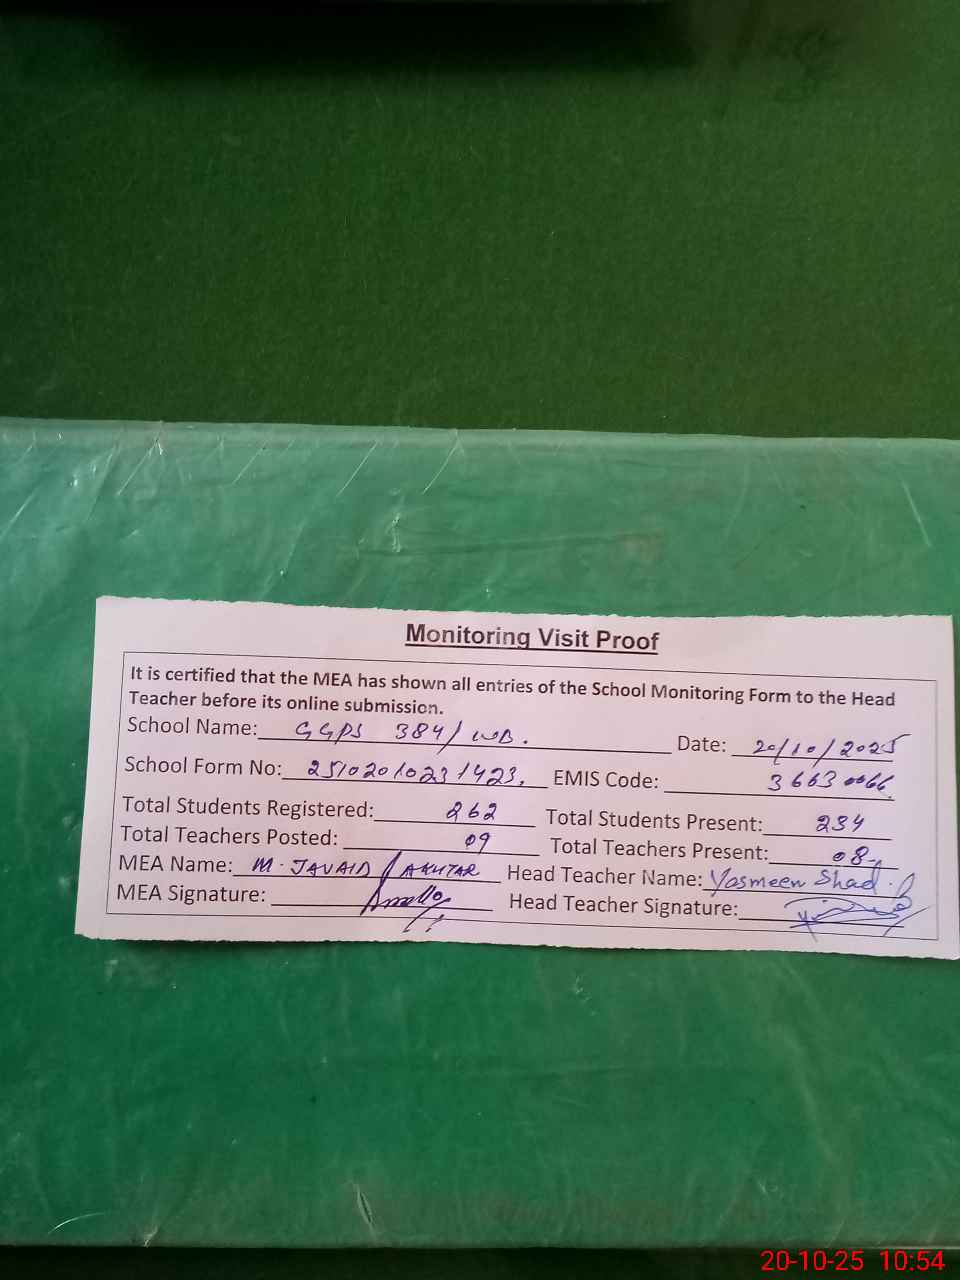 Monitoring Visit Proof
It is certified that the MEA has shown all entries of the School Monitoring Form to the Head
Teacher before its online submission.
School Name: GGPS 384/WB. Date: 20/10/2025
School Form No: 25102010231423. EMIS Code: 36630066
Total Students Registered: 262 Total Students Present: 234
Total Teachers Posted: 09 Total Teachers Present: 08
MEA Name: M. JAVAID AKHTAR Head Teacher Name: Yasmeen Shad
MEA Signature: Head Teacher Signature:
20-10-25 10:54